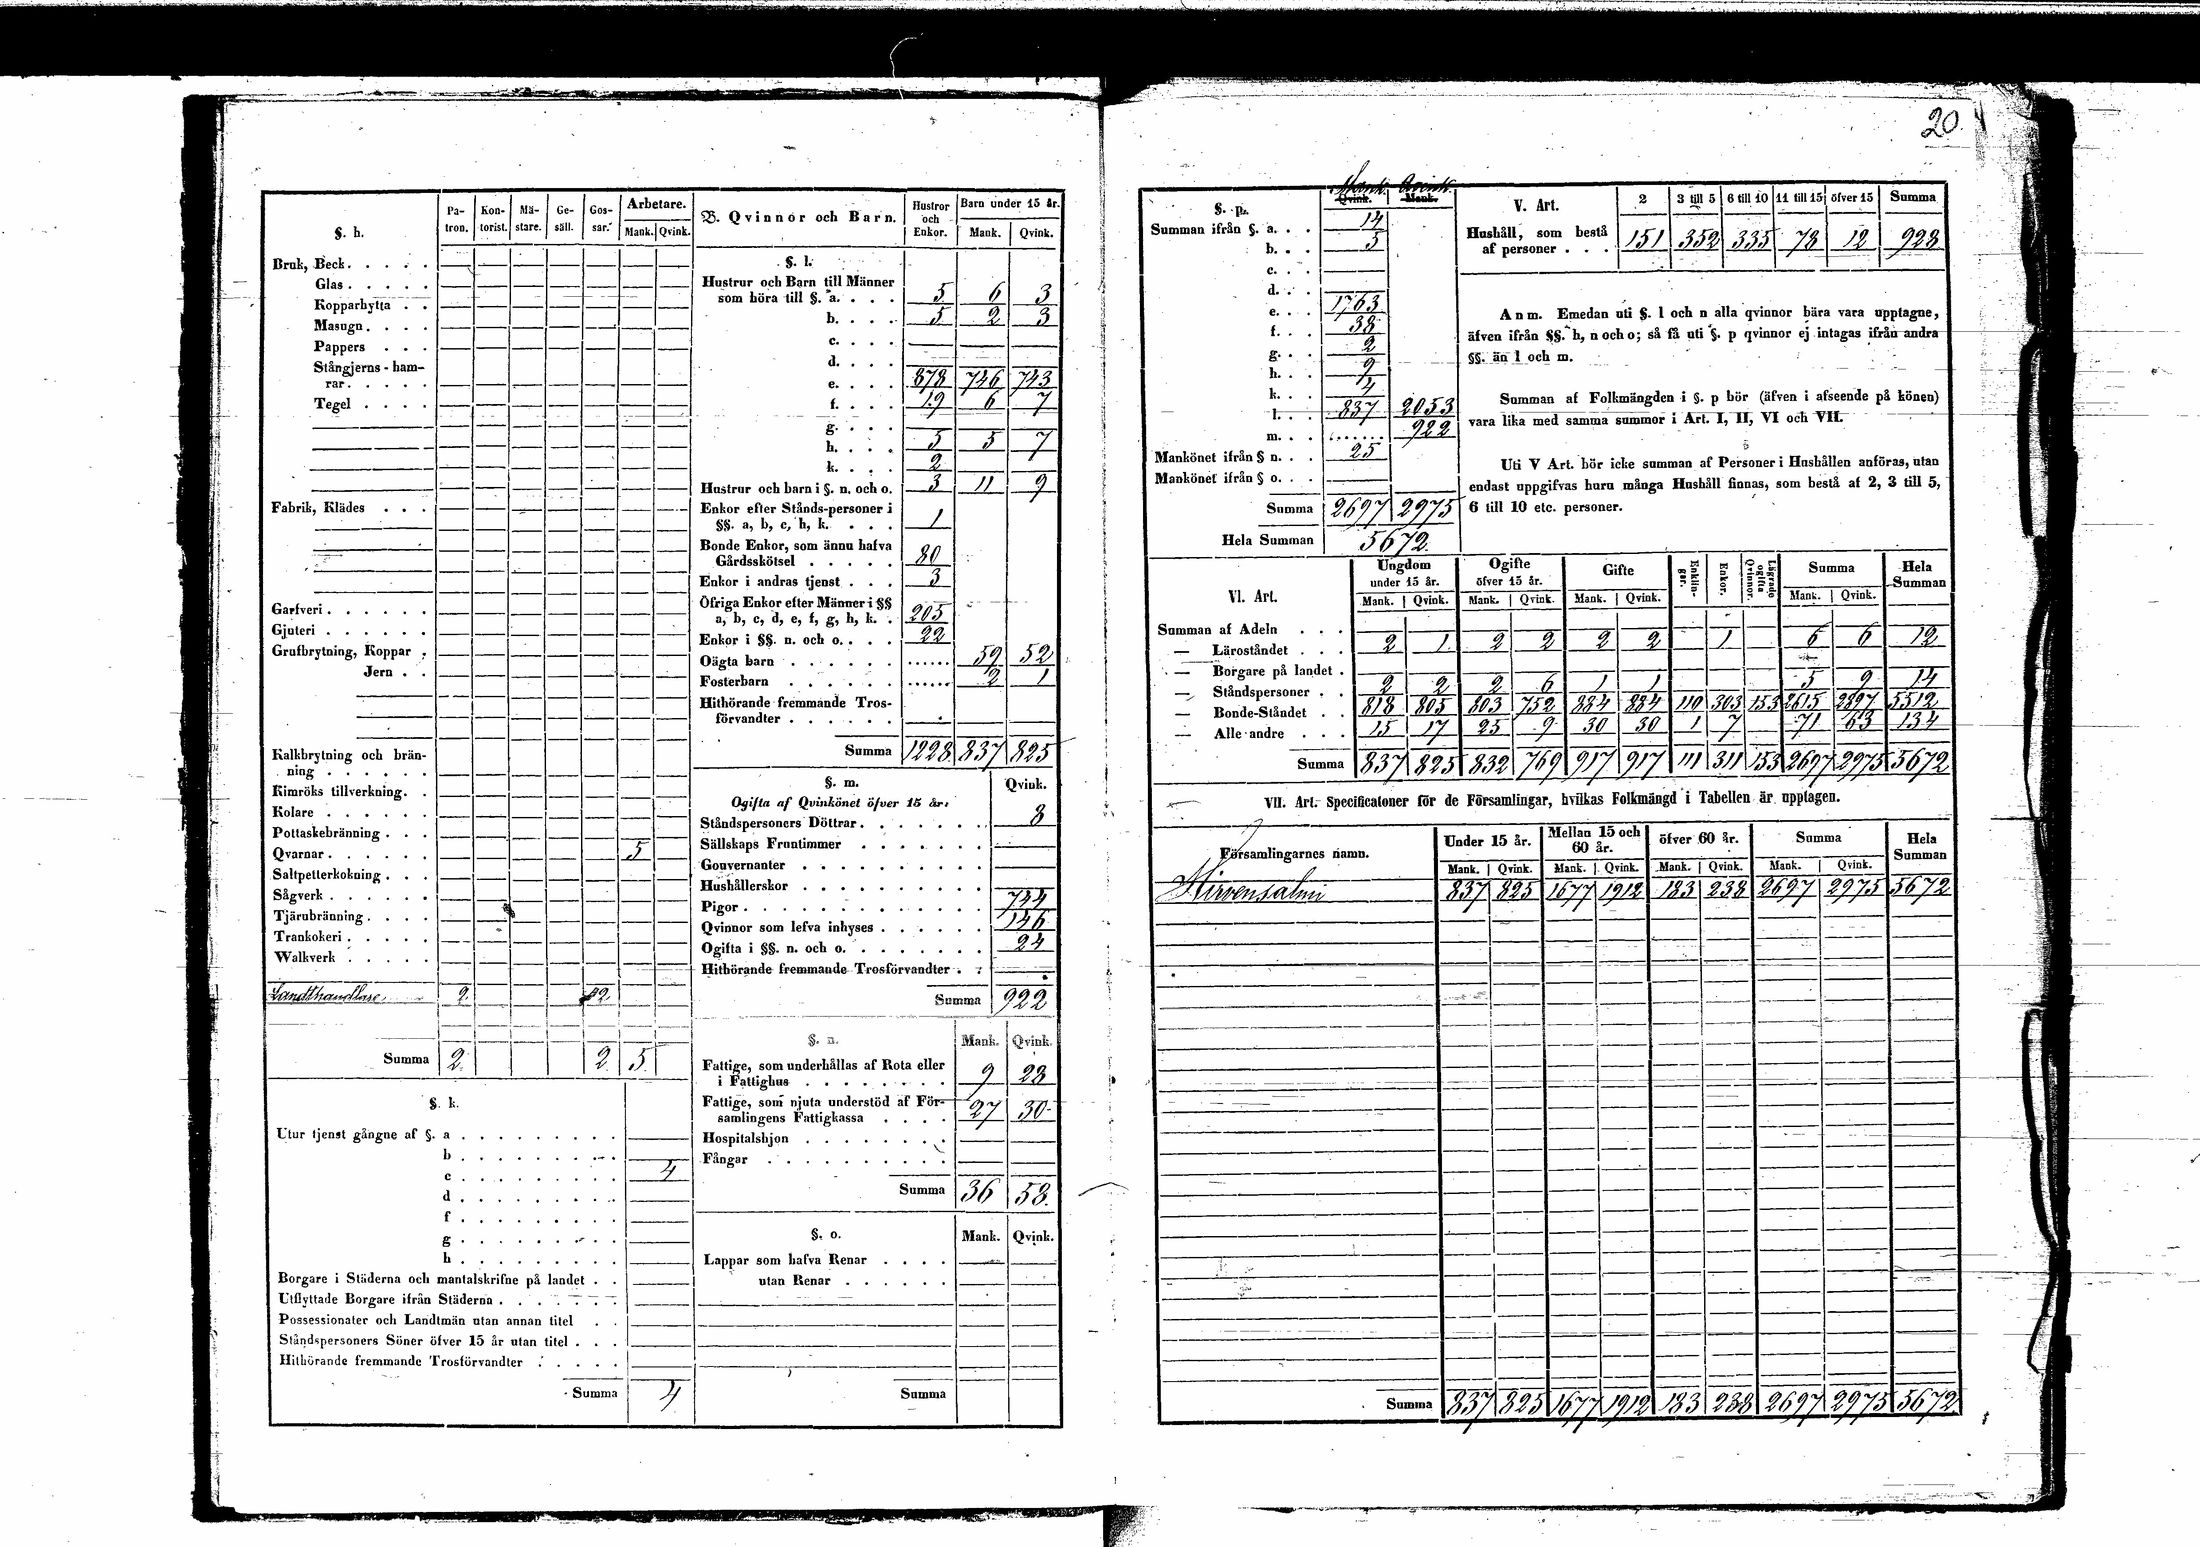 20.
§. h. Pa- tron. Kon- torist. Mä- stare. Ge- säll. Gos- sar. Arbetare. Mank. Qvink.
Bruk, Beck . . . . .
Glas . . . . .
Kopparhytta . .
Masugn . . . .
Pappers . . .
Stångjerns-ham-
rar . . . . .
Tegel . . . .
Fabrik, Klädes . . .
Garfveri . . . . . .
Gjuteri . . . . . .
Grufbrytning, Koppar .
Jern . .
Kalkbrytning och brän-
ning . . . . . .
Kimröks tillverkning . .
Kolare . . . . . .
Pottaskebränning . . .
Qvarnar . . . . . . 5
Saltpetterkokning . . .
Sågverk . . . . . .
Tjärubränning . . . .
Trankokeri . . . . .
Walkverk . . . . .
Landthandlare 2 2
Summa 2 2 5
§. k.
Utur tjenst gångne af §. a . . . . . . . . .
b . . . . . . . . .
c . . . . . . . . . 4
d . . . . . . . . .
f . . . . . . . . .
g . . . . . . . . .
h . . . . . . . . .
Borgare i Städerna och mantalskrifne på landet . .
Utflyttade Borgare ifrån Städerna . . . . . . .
Possessionater och Landtmän utan annan titel . .
Ståndspersoners Söner öfver 15 år utan titel . . .
Hithörande fremmande Trosförvandter . . . . .
Summa 4
B. Qvinnor och Barn. Hustror och Enkor. Barn under 15 år. Mank. Qvink.
§. l.
Hustrur och Barn till Männer
som höra till §. a. . . . 5 6 3
b. . . . 5 2 3
c. . . .
d. . . .
e. . . . 878 746 743
f. . . . 19 6 7
g. . . .
h. . . . 5 5 7
k. . . . 2
Hustrur och barn i §. n. och o. 3 11 9
Enkor efter Stånds-personer i
§§. a, b, c, h, k. . . . 1
Bonde Enkor, som ännu hafva
Gårdsskötsel . . . . . 80
Enkor i andras tjenst . . . 3
Öfriga Enkor efter Männer i §§
a, b, c, d, e, f, g, h, k. . 205
Enkor i §§. n. och o. . . . 22
Oägta barn . . . . . . 59 52
Fosterbarn . . . . . . 2 1
Hithörande fremmande Tros-
förvandter . . . . . .
Summa 1228 837 825
§. m. Qvink.
Ogifta af Qvinkönet öfver 15 år:
Ståndspersoners Döttrar . . . . . . . 8
Sällskaps Fruntimmer . . . . . . .
Gouvernanter . . . . . . . . . .
Hushållerskor . . . . . . . . . .
Pigor . . . . . . . . . . . . . 744
Qvinnor som lefva inhyses . . . . . . 146
Ogifta i §§. n. och o. . . . . . . . . 24
Hithörande fremmande Trosförvandter . .
Summa 922
§. n. Mank. Qvink.
Fattige, som underhållas af Rota eller
i Fattighus . . . . . . . . 9 28
Fattige, som njuta understöd af För-
samlingens Fattigkassa . . . . 27 30
Hospitalshjon . . . . . . . .
Fångar . . . . . . . . . .
Summa 36 58
§. o. Mank. Qvink.
Lappar som hafva Renar . . . .
utan Renar . . . . . .
Summa
§. p. Mank. Qvink.
Qvink. Mank.
Summan ifrån §. a. . . 14
b. . . 5
c. . .
d. . .
e. . . 1763
f. . . 38
g. . . 2
h. . . 9
k. . . 4
l. . . 837 2053
m. . . 922
Mankönet ifrån § n. . . 25
Mankönet ifrån § o. . .
Summa 2697 2975
Hela Summan 5672
V. Art. 2 3 till 5 6 till 10 11 till 15 öfver 15 Summa
Hushåll, som bestå
af personer . . . 151 352 335 78 12 928
Anm. Emedan uti §. l och n alla qvinnor bära vara upptagne,
äfven ifrån §§. h, n och o; så få uti §. p qvinnor ej intagas ifrån andra
§§. än l och m.
Summan af Folkmängden i §. p bör (äfven i afseende på könen)
vara lika med samma summor i Art. I, II, VI och VII.
Uti V Art. bör icke summan af Personer i Hushållen anföras, utan
endast uppgifvas huru många Hushåll finnas, som bestå af 2, 3 till 5,
6 till 10 etc. personer.
VI. Art. Ungdom under 15 år. Ogifte öfver 15 år. Gifte Enklin- gar. Enkor. Lägrade ogifta Qvinnor. Summa Hela Summan
Mank. Qvink. Mank. Qvink. Mank. Qvink. Mank. Qvink.
Summan af Adeln . . .
— Läroståndet . . . 2 1 2 2 2 2 1 6 6 12
— Borgare på landet .
— Ståndspersoner . . 2 2 2 6 1 1 5 9 14
— Bonde-Ståndet . . 818 805 803 752 884 884 110 303 153 2615 2897 5512
— Alle andre . . . 15 17 25 9 30 30 1 7 71 63 134
Summa 837 825 832 769 917 917 111 311 153 2697 2975 5672
VII. Art. Specificatoner för de Församlingar, hvilkas Folkmängd i Tabellen är upptagen.
Församlingarnes namn. Under 15 år. Mellan 15 och 60 år. öfver 60 år. Summa Hela Summan
Mank. Qvink. Mank. Qvink. Mank. Qvink. Mank. Qvink.
Hirvensalmi 837 825 1677 1912 183 238 2697 2975 5672
Summa 837 825 1677 1912 183 238 2697 2975 5672